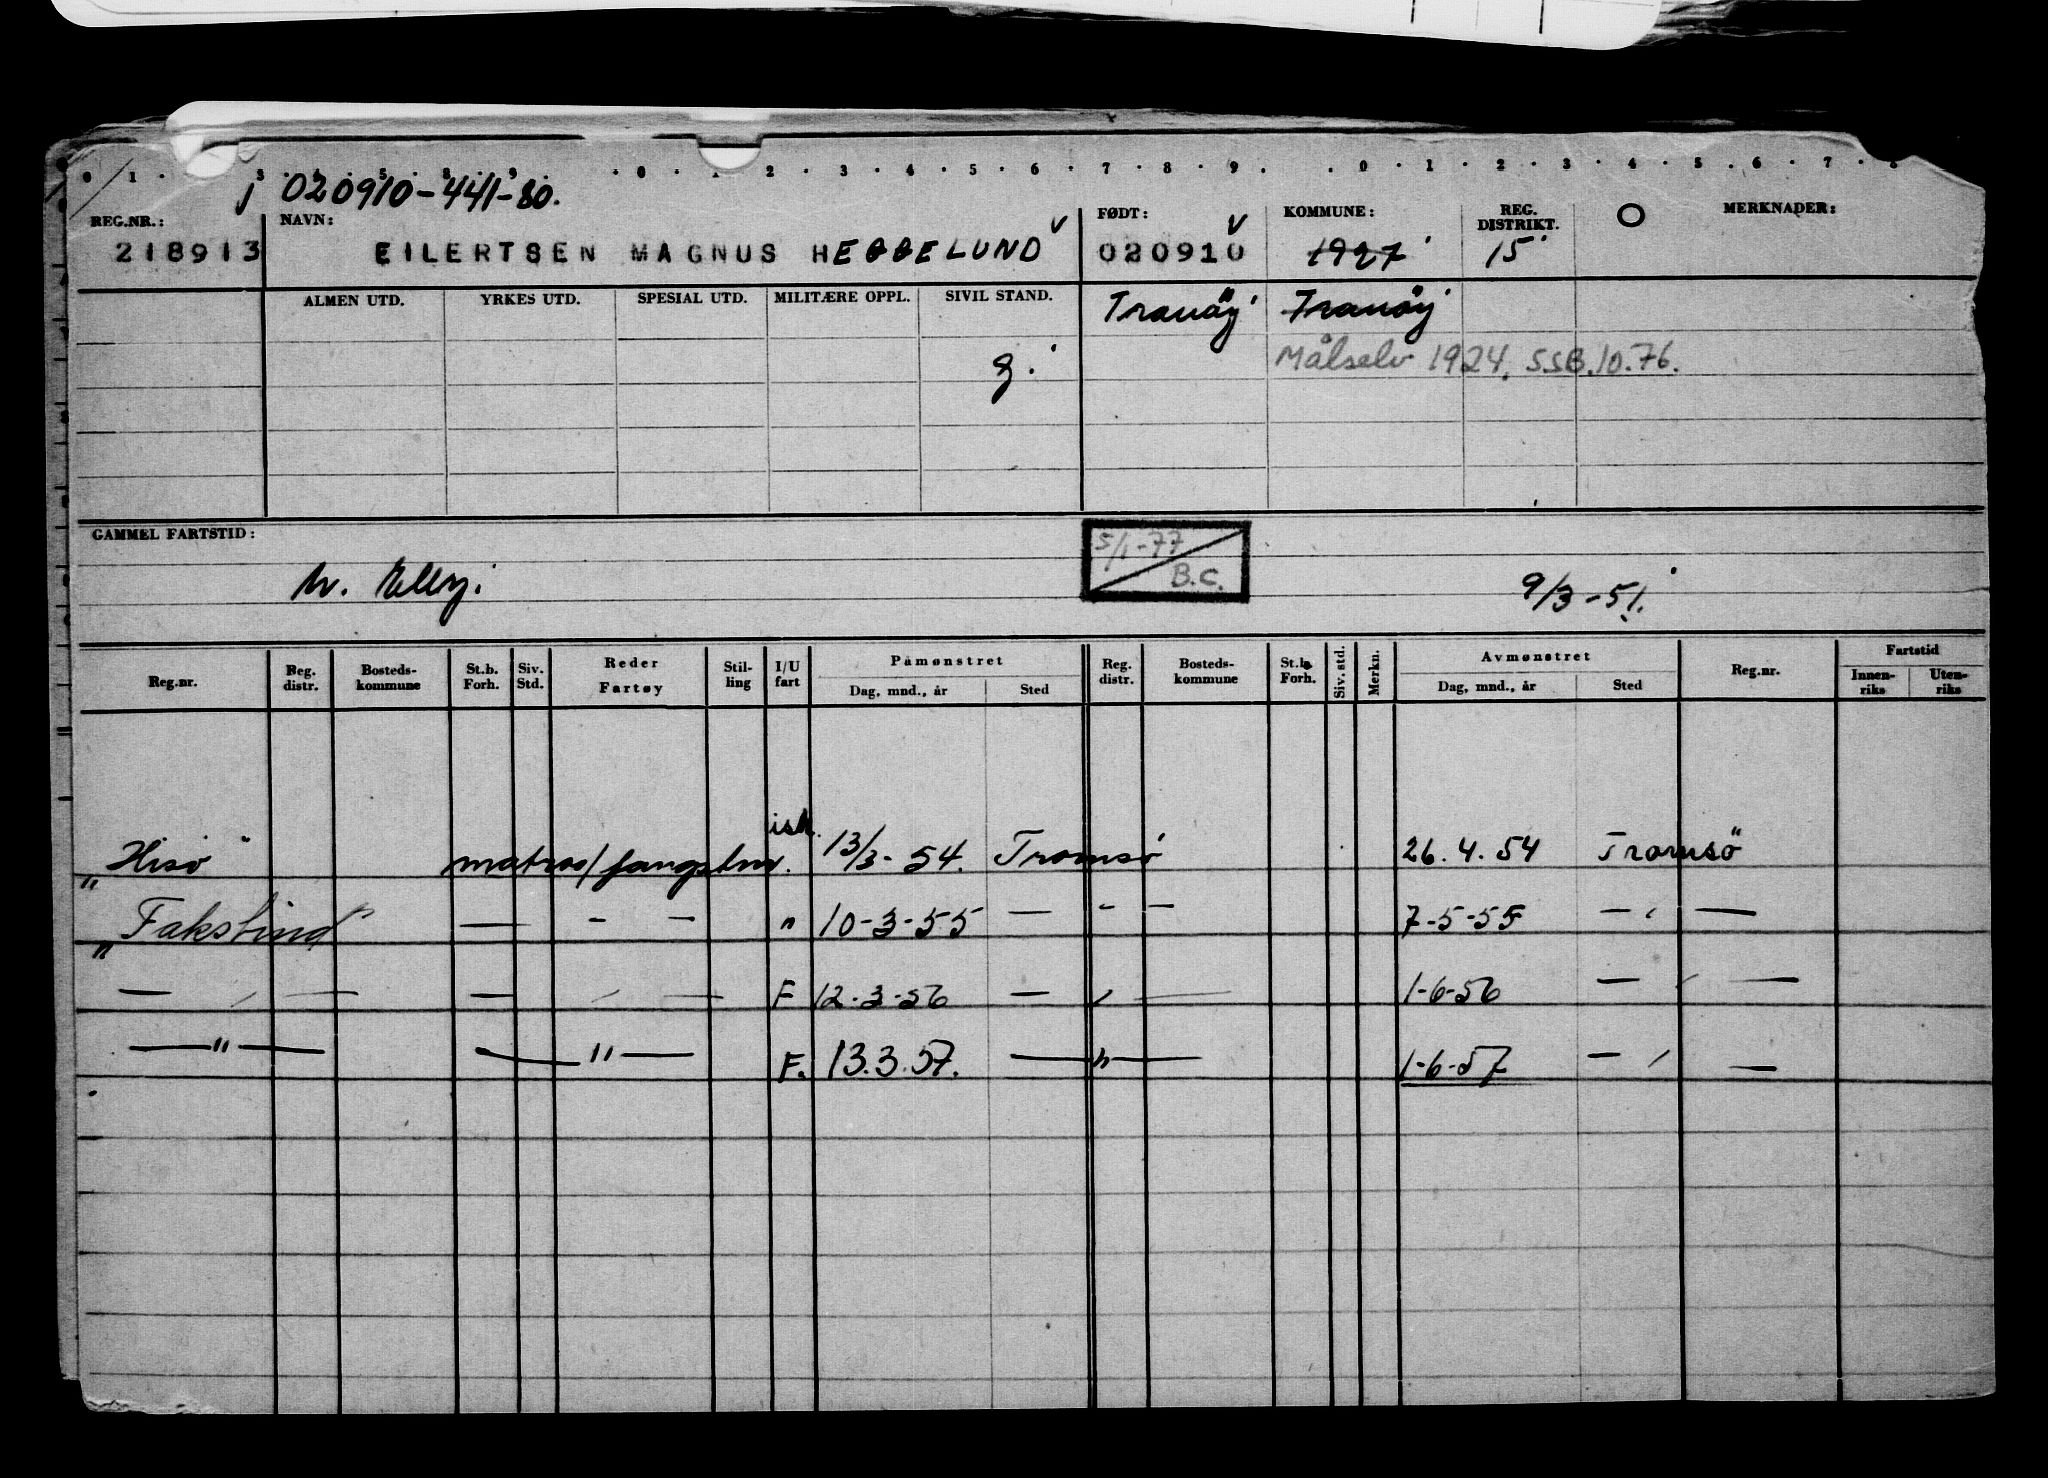 0 1 . 3 . 4 . 5 . 8 . 9 . . 0 . 1 . 2 . 3 . 4 . 5 . 6 . 7 . 8 . 9 . . 0 . 1 . 2 . 3 . 4 . 5 . 6 . 7 . 8
020910-441-80.
REG.NR.: NAVN: FØDT: KOMMUNE: REG. DISTRIKT. O MERKNADER:
218913 EILERTSEN MAGNUS HEGGELUND V 020910 V 1927 15
ALMEN UTD. YRKES UTD. SPESIAL UTD. MILITÆRE OPPL. SIVIL STAND. Tranöy Tranöy
g. Målselv 1924. SSB.10.76.
GAMMEL FARTSTID: 5/1-77
B.C.
h. Elly. 9/3-51.
Reg.nr. Reg. distr. Bosteds- kommune St.b. Forh. Siv. Std. Reder Fartøy Stil- ling I/U fart Påmønstret Dag, mnd., år Sted Reg. distr. Bosteds- kommune St.b. Forh. Siv. std. Merkn. Avmønstret Dag, mnd., år Sted Reg.nr. Fartstid Innen- riks Uten- riks
ish.
"Hisö" matros/fangstm. 13/3-54. Tromsö 26.4.54 Tromsö
"Fakstind" — - — " 10-3-55 — - — 7-5-55 — —
— — — F 12-3-56 — — 1-6-56 — —
— " — — " — F. 13.3.57. — " — 1-6-57 — —